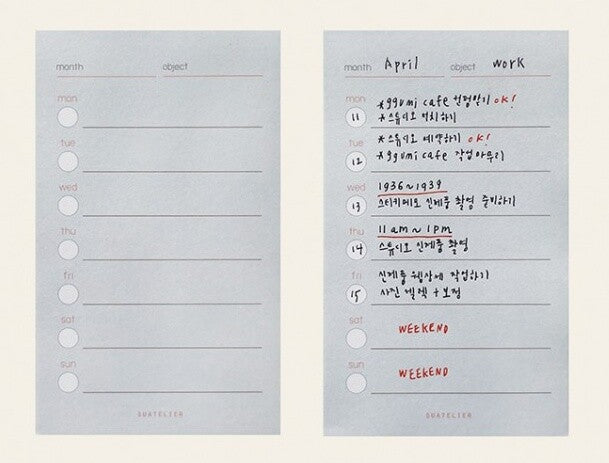 month object
mon
tue
wed
thu
fri
sat
sun
DUATELIER
month April object work
mon
11
*ggumi cafe 컨펌받기 OK!
*스튜디오 서치하기
tue
12
*스튜디오 예약하기 OK!
*ggumi cafe 작업마무리
wed
13
1936~1939
스티키메모 신제품 촬영 준비하기
thu
14
11am~1pm
스튜디오 신제품 촬영
fri
15
신제품 웹상세 작업하기
사진 셀렉 + 보정
sat
WEEKEND
sun
WEEKEND
DUATELIER